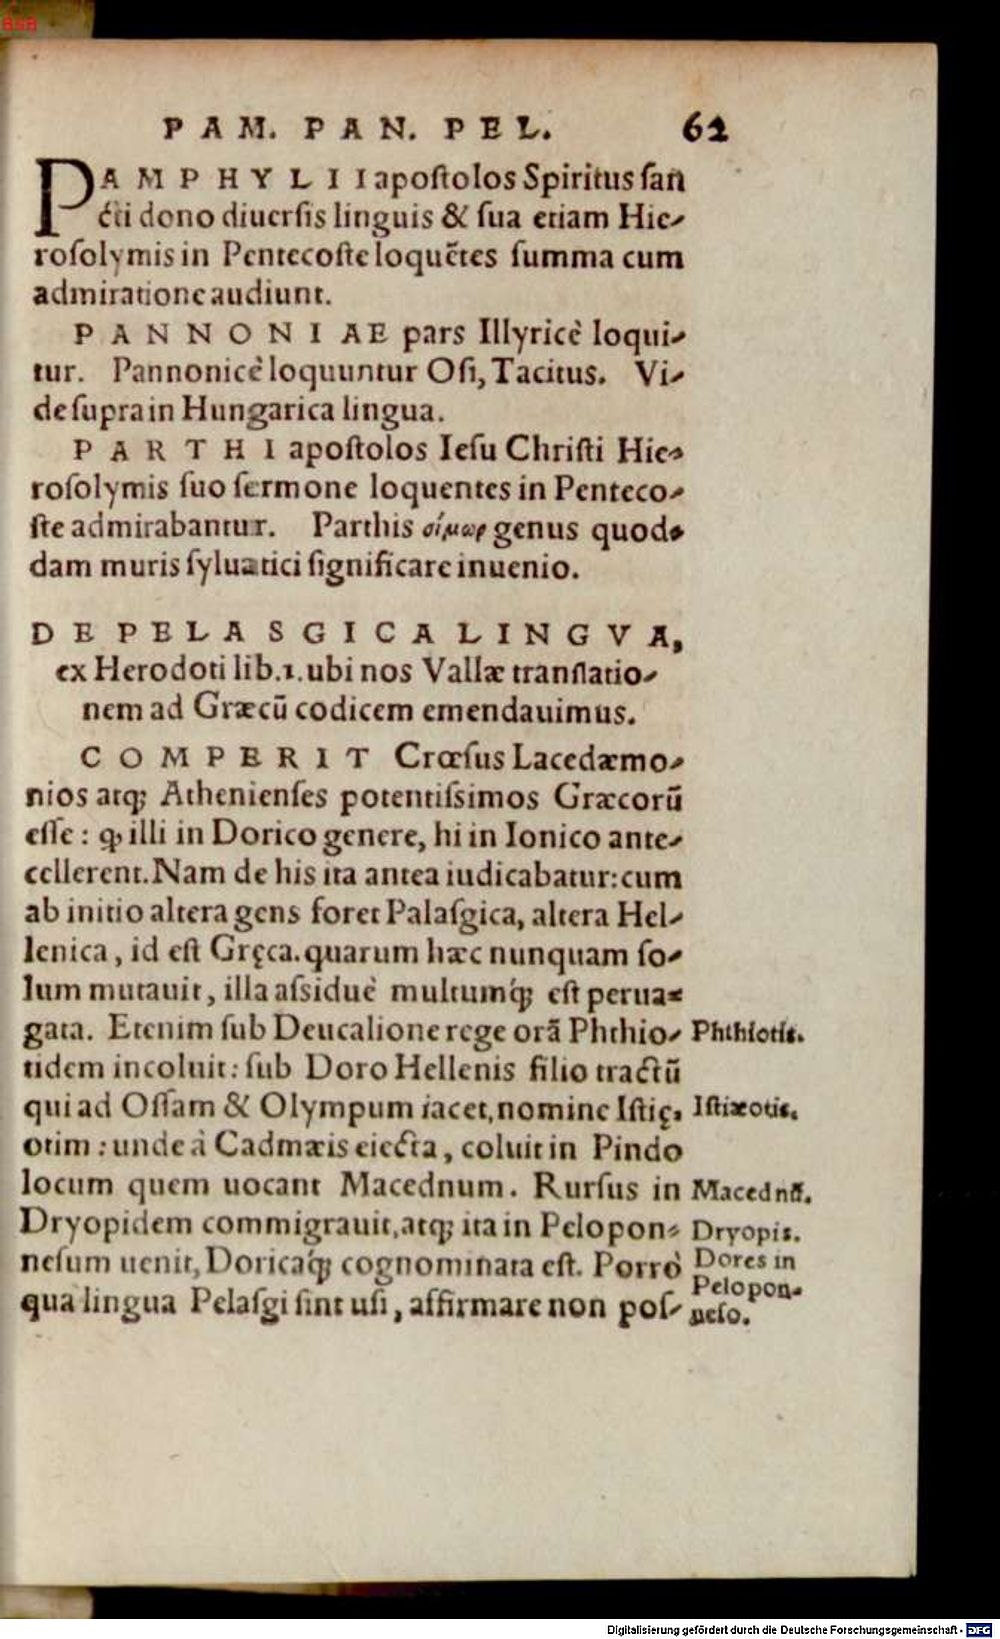 BSB
PAM. PAN. PEL. 62
PAMPHYLII apoſtolos Spiritus ſan
cti dono diuerſis linguis & ſua etiam Hie-
roſolymis in Pentecoſte loquẽtes ſumma cum
admiratione audiunt.
PANNONIAE pars Illyricè loqui-
tur. Pannonicè loquuntur Oſi, Tacitus. Vi-
de ſupra in Hungarica lingua.
PARTHI apoſtolos Ieſu Chriſti Hie-
roſolymis ſuo ſermone loquentes in Penteco-
ſte admirabantur. Parthis σίμωρ genus quod-
dam muris ſyluatici ſignificare inuenio.
DE PELASGICA LINGVA,
ex Herodoti lib.1. ubi nos Vallæ tranſlatio-
nem ad Græcũ codicem emendauimus.
COMPERIT Crœſus Lacedæmo-
nios atq; Athenienſes potentiſsimos Græcorũ
eſſe: ꝙ illi in Dorico genere, hi in Ionico ante-
cellerent. Nam de his ita antea iudicabatur: cum
ab initio altera gens foret Palaſgica, altera Hel-
lenica, id eſt Gręca. quarum hæc nunquam ſo-
lum mutauit, illa aſsiduè multumq́; eſt perua-
gata. Etenim ſub Deucalione rege orã Phthio- Phthiotis.
tidem incoluit: ſub Doro Hellenis filio tractũ
qui ad Oſſam & Olympum iacet, nomine Iſtię- Iſtiæotis.
otim: unde à Cadmæis eiecta, coluit in Pindo
locum quem uocant Macednum. Rurſus in Macednũ.
Dryopidem commigrauit, atq; ita in Pelopon- Dryopis.
neſum uenit, Doricaq́; cognominata eſt. Porrò Dores in
Pelopon-
qua lingua Pelaſgi ſint uſi, affirmare non poſ- neſo.
Digitalisierung gefördert durch die Deutsche Forschungsgemeinschaft - DFG